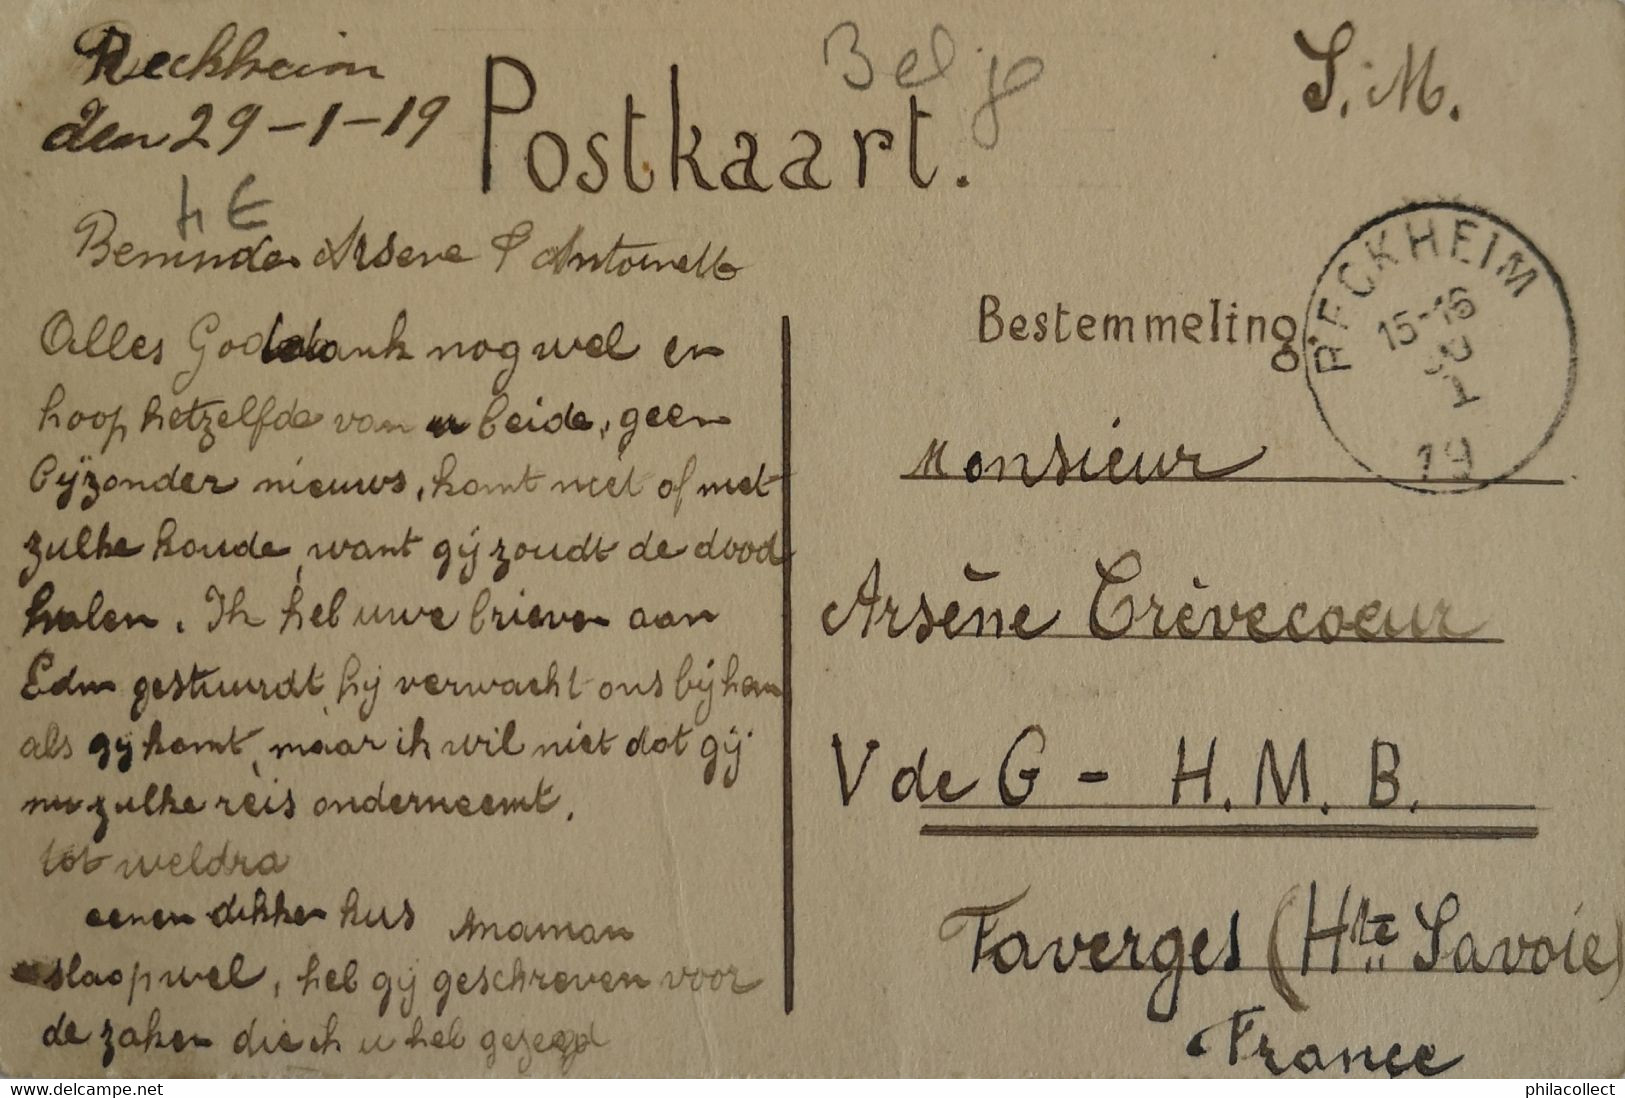 Reckheim
den 29-1-19
Postkaart.
Belg
S.M.
Beminde Arsene & Antoinette
Alles Goddank nog wel en
hoop hetzelfde van u beide, geen
bijzonder nieuws, komt niet of met
zulke koude, want gij zoudt de dood
halen. Ik heb uwe brieven aan
Edm gestuurdt, hij verwacht ons bij hem
als gij komt, maar ik wil niet dat gij
nu zulke reis onderneemt.
tot weldra
eenen dikken kus Maman
slaapwel, heb gij geschreven voor
de zaken die ik u heb gezegd
Bestemmeling
RECKHEIM
15-16
1
19
Monsieur
Arsène Crèvecoeur
V de G - H.M.B.
Faverges (Hte Savoie)
France
philacollect